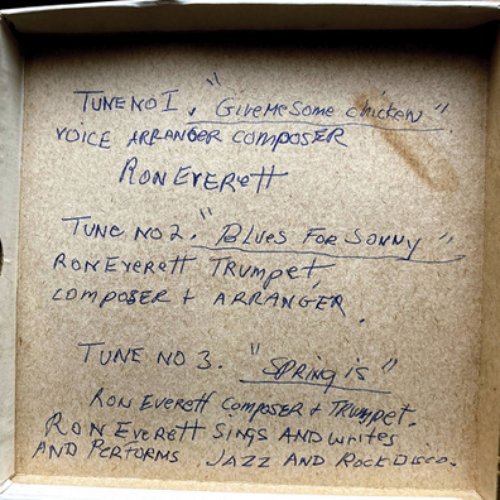 TUNE NO I. "GIVE ME SOME CHICKEN".
VOICE ARRANGER COMPOSER
RON EVERETT
TUNE NO 2. "BLUES FOR SONNY"
RON EVERETT TRUMPET,
COMPOSER + ARRANGER.
TUNE NO 3. "SPRING IS"
RON EVERETT COMPOSER + TRUMPET.
RON EVERETT SINGS AND WRITES
AND PERFORMS JAZZ AND ROCK DISCO.